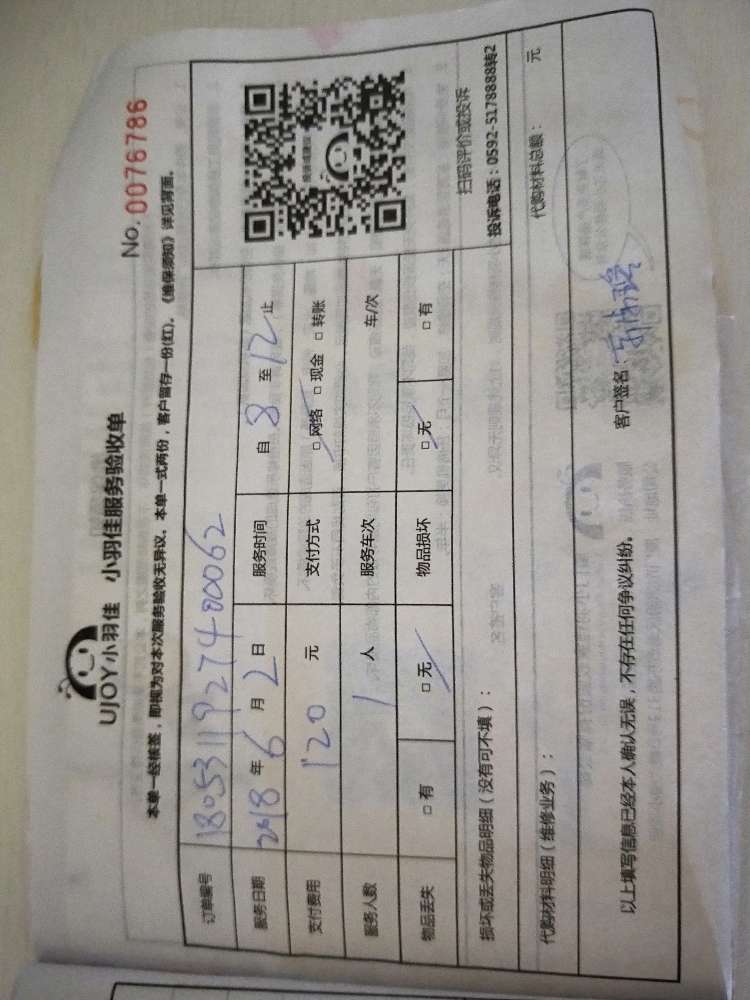 UJOY小羽佳 小羽佳服务验收单
No. 0076786
本单一经核签，即视为对本次服务验收无异议。本单一式两份，客户留存一份(红)。《维保须知》详见背面。
订单编号 180531192740062
服务日期 2018 年 6 月 2 日 服务时间 自 8 至 12 止
支付费用 120 元 支付方式 □网络 □现金 □转账
服务人数 1 人 服务车次 车/次
物品丢失 □有 □无 物品损坏 □无 □有
扫码评价或投诉
投诉电话：0592-5178888转2
损坏或丢失物品明细（没有可不填）：
代购材料明细（维修业务）： 代购材料总额： 元
以上填写信息已经本人确认无误，不存在任何争议纠纷。 客户签名：